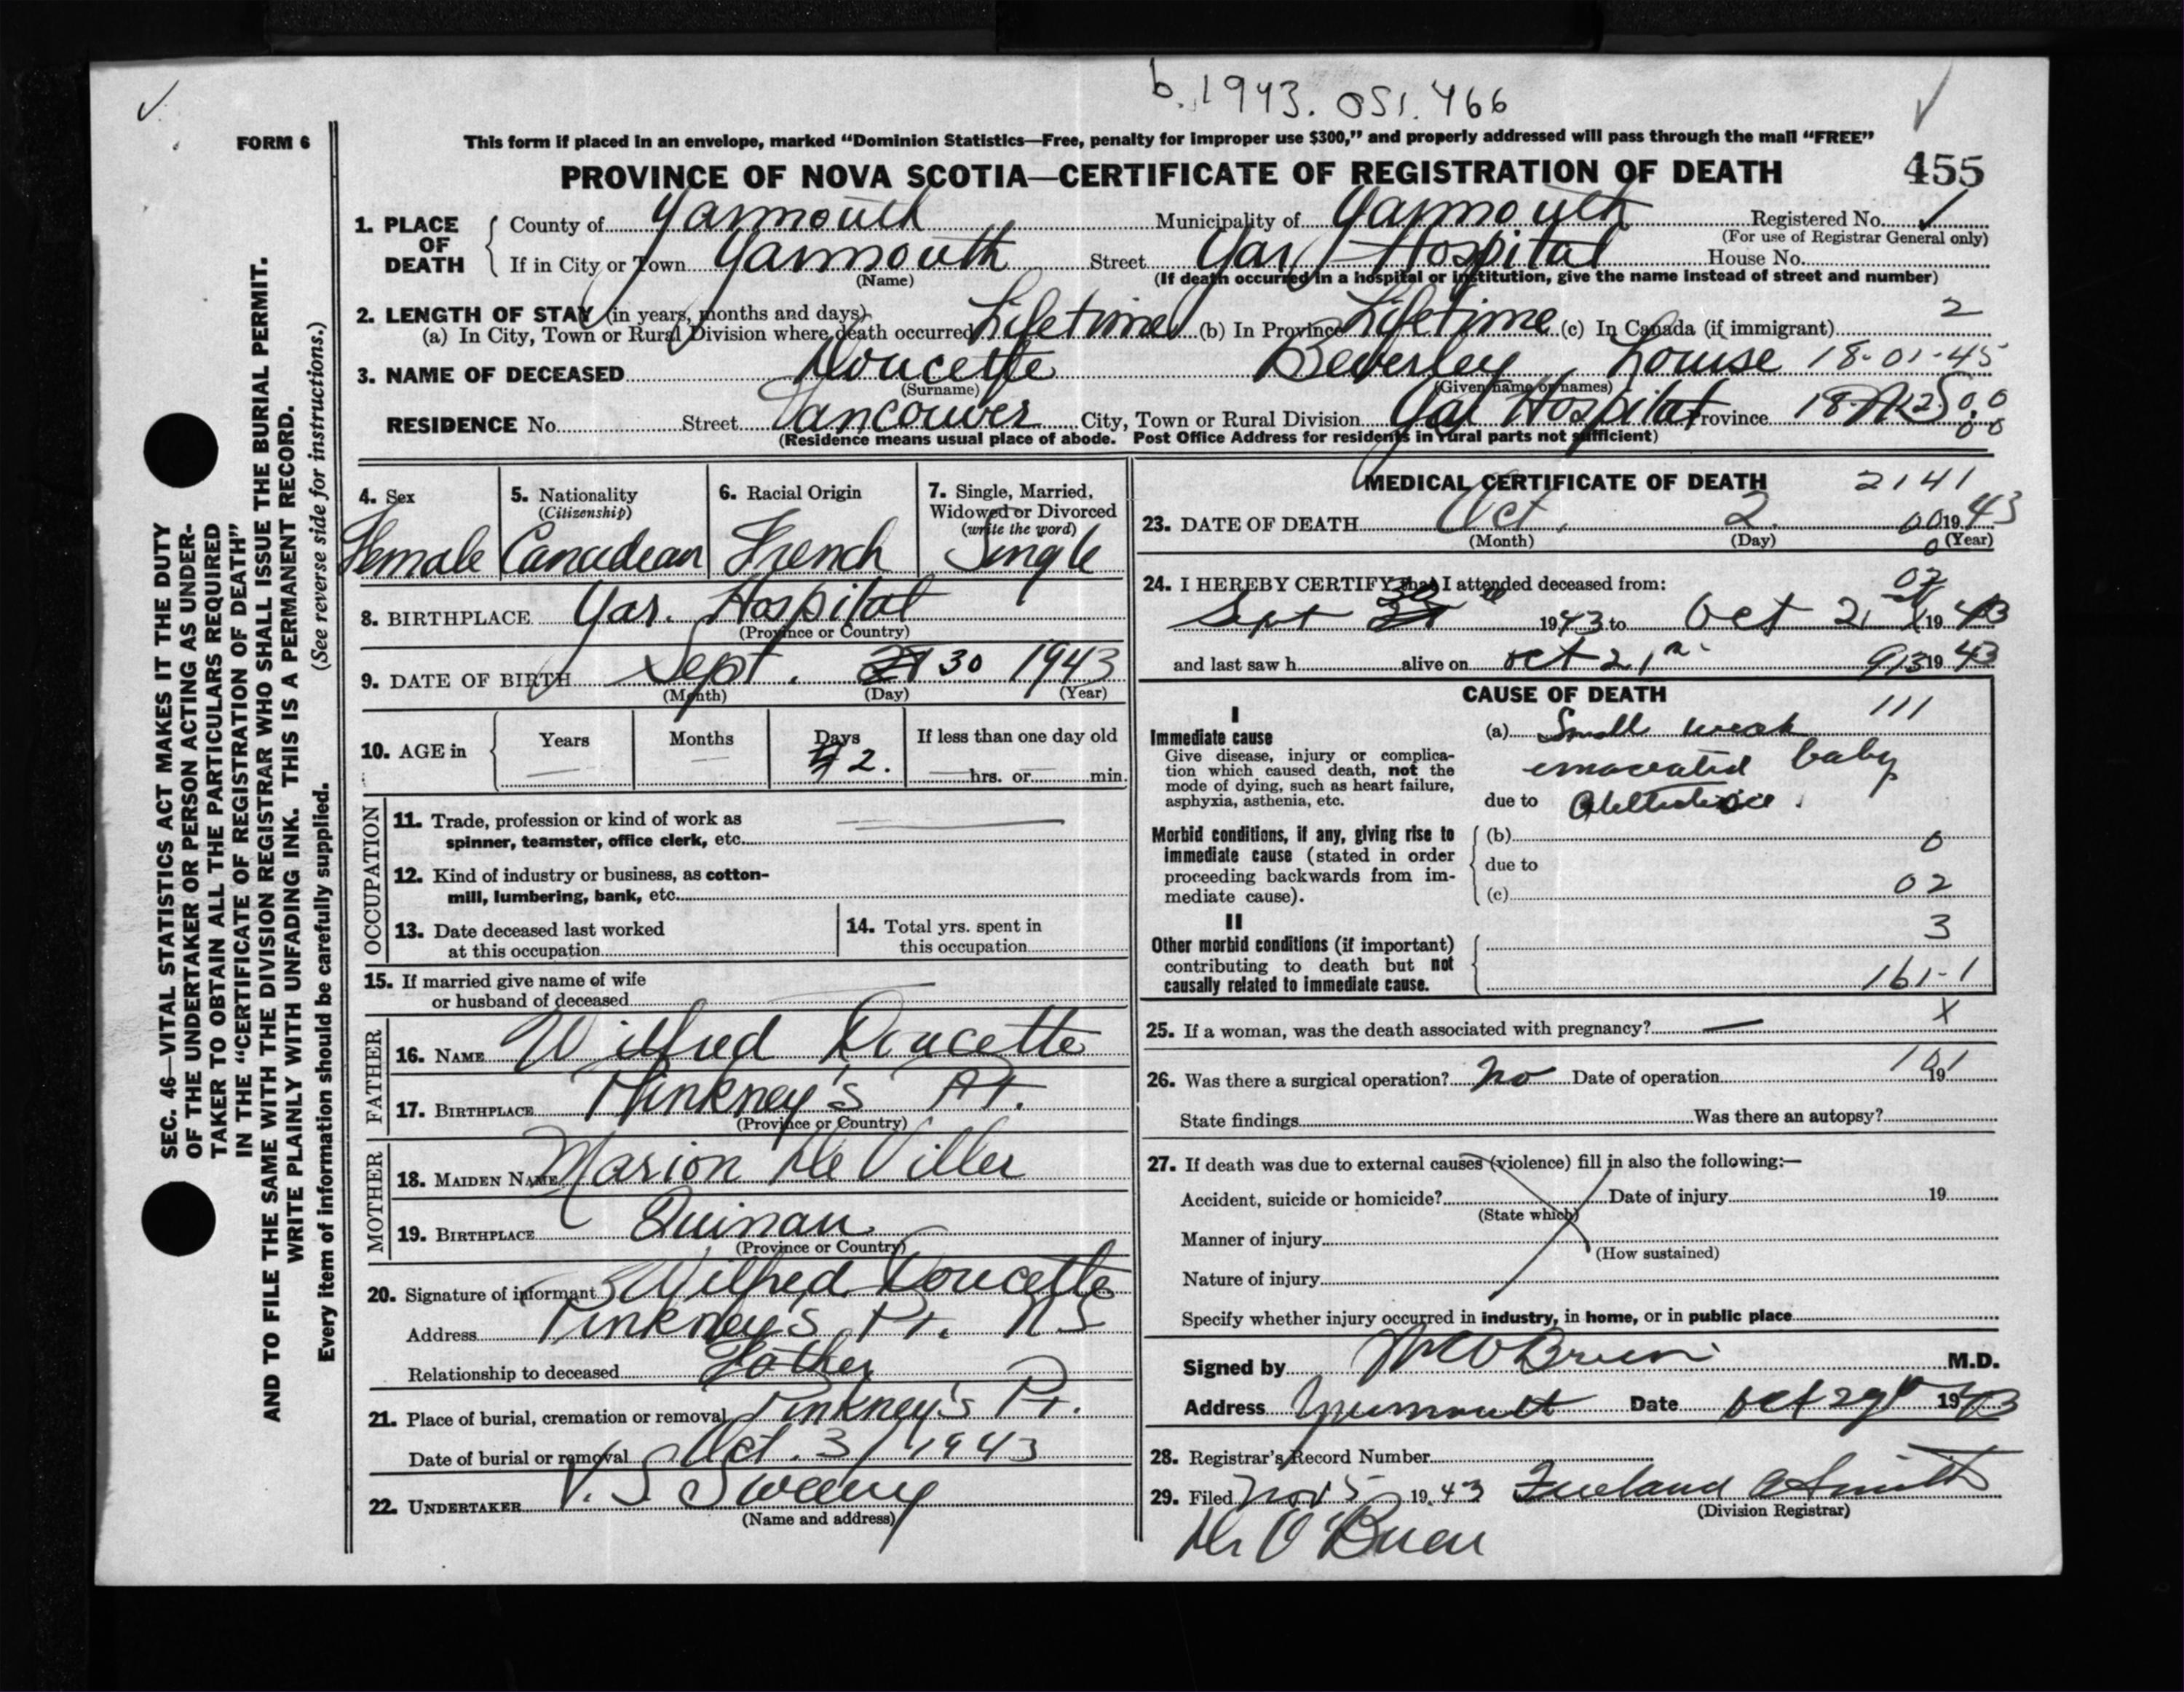 b. 1943. 051. 466
FORM 6
This form if placed in an envelope, marked “Dominion Statistics—Free, penalty for improper use $300,” and properly addressed will pass through the mail “FREE”
PROVINCE OF NOVA SCOTIA—CERTIFICATE OF REGISTRATION OF DEATH 455
SEC. 46—VITAL STATISTICS ACT MAKES IT THE DUTY
OF THE UNDERTAKER OR PERSON ACTING AS UNDER-
TAKER TO OBTAIN ALL THE PARTICULARS REQUIRED
IN THE “CERTIFICATE OF REGISTRATION OF DEATH”
AND TO FILE THE SAME WITH THE DIVISION REGISTRAR WHO SHALL ISSUE THE BURIAL PERMIT.
WRITE PLAINLY WITH UNFADING INK. THIS IS A PERMANENT RECORD.
Every item of information should be carefully supplied. (See reverse side for instructions.)
1. PLACE OF DEATH
County of Yarmouth Municipality of Yarmouth Registered No. ✓
(For use of Registrar General only)
If in City or Town Yarmouth Street Yar Hospital House No.
(Name) (If death occurred in a hospital or institution, give the name instead of street and number)
2. LENGTH OF STAY (in years, months and days) 2
(a) In City, Town or Rural Division where death occurred Lifetime (b) In Province Lifetime (c) In Canada (if immigrant)
3. NAME OF DECEASED Doucette Beverley Louise 18-01-45
(Surname) (Given name or names)
RESIDENCE No. Street Vancouver City, Town or Rural Division Yar Hospital Province
(Residence means usual place of abode. Post Office Address for residents in rural parts not sufficient)
4. Sex 5. Nationality 6. Racial Origin 7. Single, Married,
(Citizenship) Widowed or Divorced
(write the word)
Female Canadian French Single
8. BIRTHPLACE Yar. Hospital
(Province or Country)
9. DATE OF BIRTH Sept. 30 1943
(Month) (Day) (Year)
10. AGE in Years Months Days If less than one day old
2. hrs. or min.
OCCUPATION
11. Trade, profession or kind of work as
spinner, teamster, office clerk, etc.
12. Kind of industry or business, as cotton-
mill, lumbering, bank, etc.
13. Date deceased last worked 14. Total yrs. spent in
at this occupation this occupation
15. If married give name of wife
or husband of deceased
FATHER
16. NAME Wilfred Doucette
17. BIRTHPLACE Pinkney's Pt.
(Province or Country)
MOTHER
18. MAIDEN NAME Marion De Viller
19. BIRTHPLACE Quinan
(Province or Country)
20. Signature of informant Wilfred Doucette
Address Pinkney's Pt. N S
Relationship to deceased Father
21. Place of burial, cremation or removal Pinkney's Pt.
Date of burial or removal Oct. 3/1943
22. UNDERTAKER V. S. Sweeny
(Name and address)
MEDICAL CERTIFICATE OF DEATH 2141
23. DATE OF DEATH Oct. 2. 1943
(Month) (Day) (Year)
24. I HEREBY CERTIFY that I attended deceased from:
Sept 30 1943 to Oct 2 1943
and last saw h alive on Oct 2 1943
CAUSE OF DEATH
I 111
Immediate cause (a) Small weak
Give disease, injury or complica- emaciated baby
tion which caused death, not the
mode of dying, such as heart failure,
asphyxia, asthenia, etc. due to
Morbid conditions, if any, giving rise to (b) 0
immediate cause (stated in order due to
proceeding backwards from im- 02
mediate cause). (c)
II 3
Other morbid conditions (if important)
contributing to death but not
causally related to immediate cause. 161-1
25. If a woman, was the death associated with pregnancy? — X
26. Was there a surgical operation? No Date of operation 19
State findings Was there an autopsy?
27. If death was due to external causes (violence) fill in also the following:—
Accident, suicide or homicide? Date of injury 19
(State which)
Manner of injury
(How sustained)
Nature of injury
Specify whether injury occurred in industry, in home, or in public place
Signed by O'Brien M.D.
Address Yarmouth Date Oct 29 1943
28. Registrar's Record Number
29. Filed Nov 5 1943 Freeland Smith
(Division Registrar)
Dr O'Brien